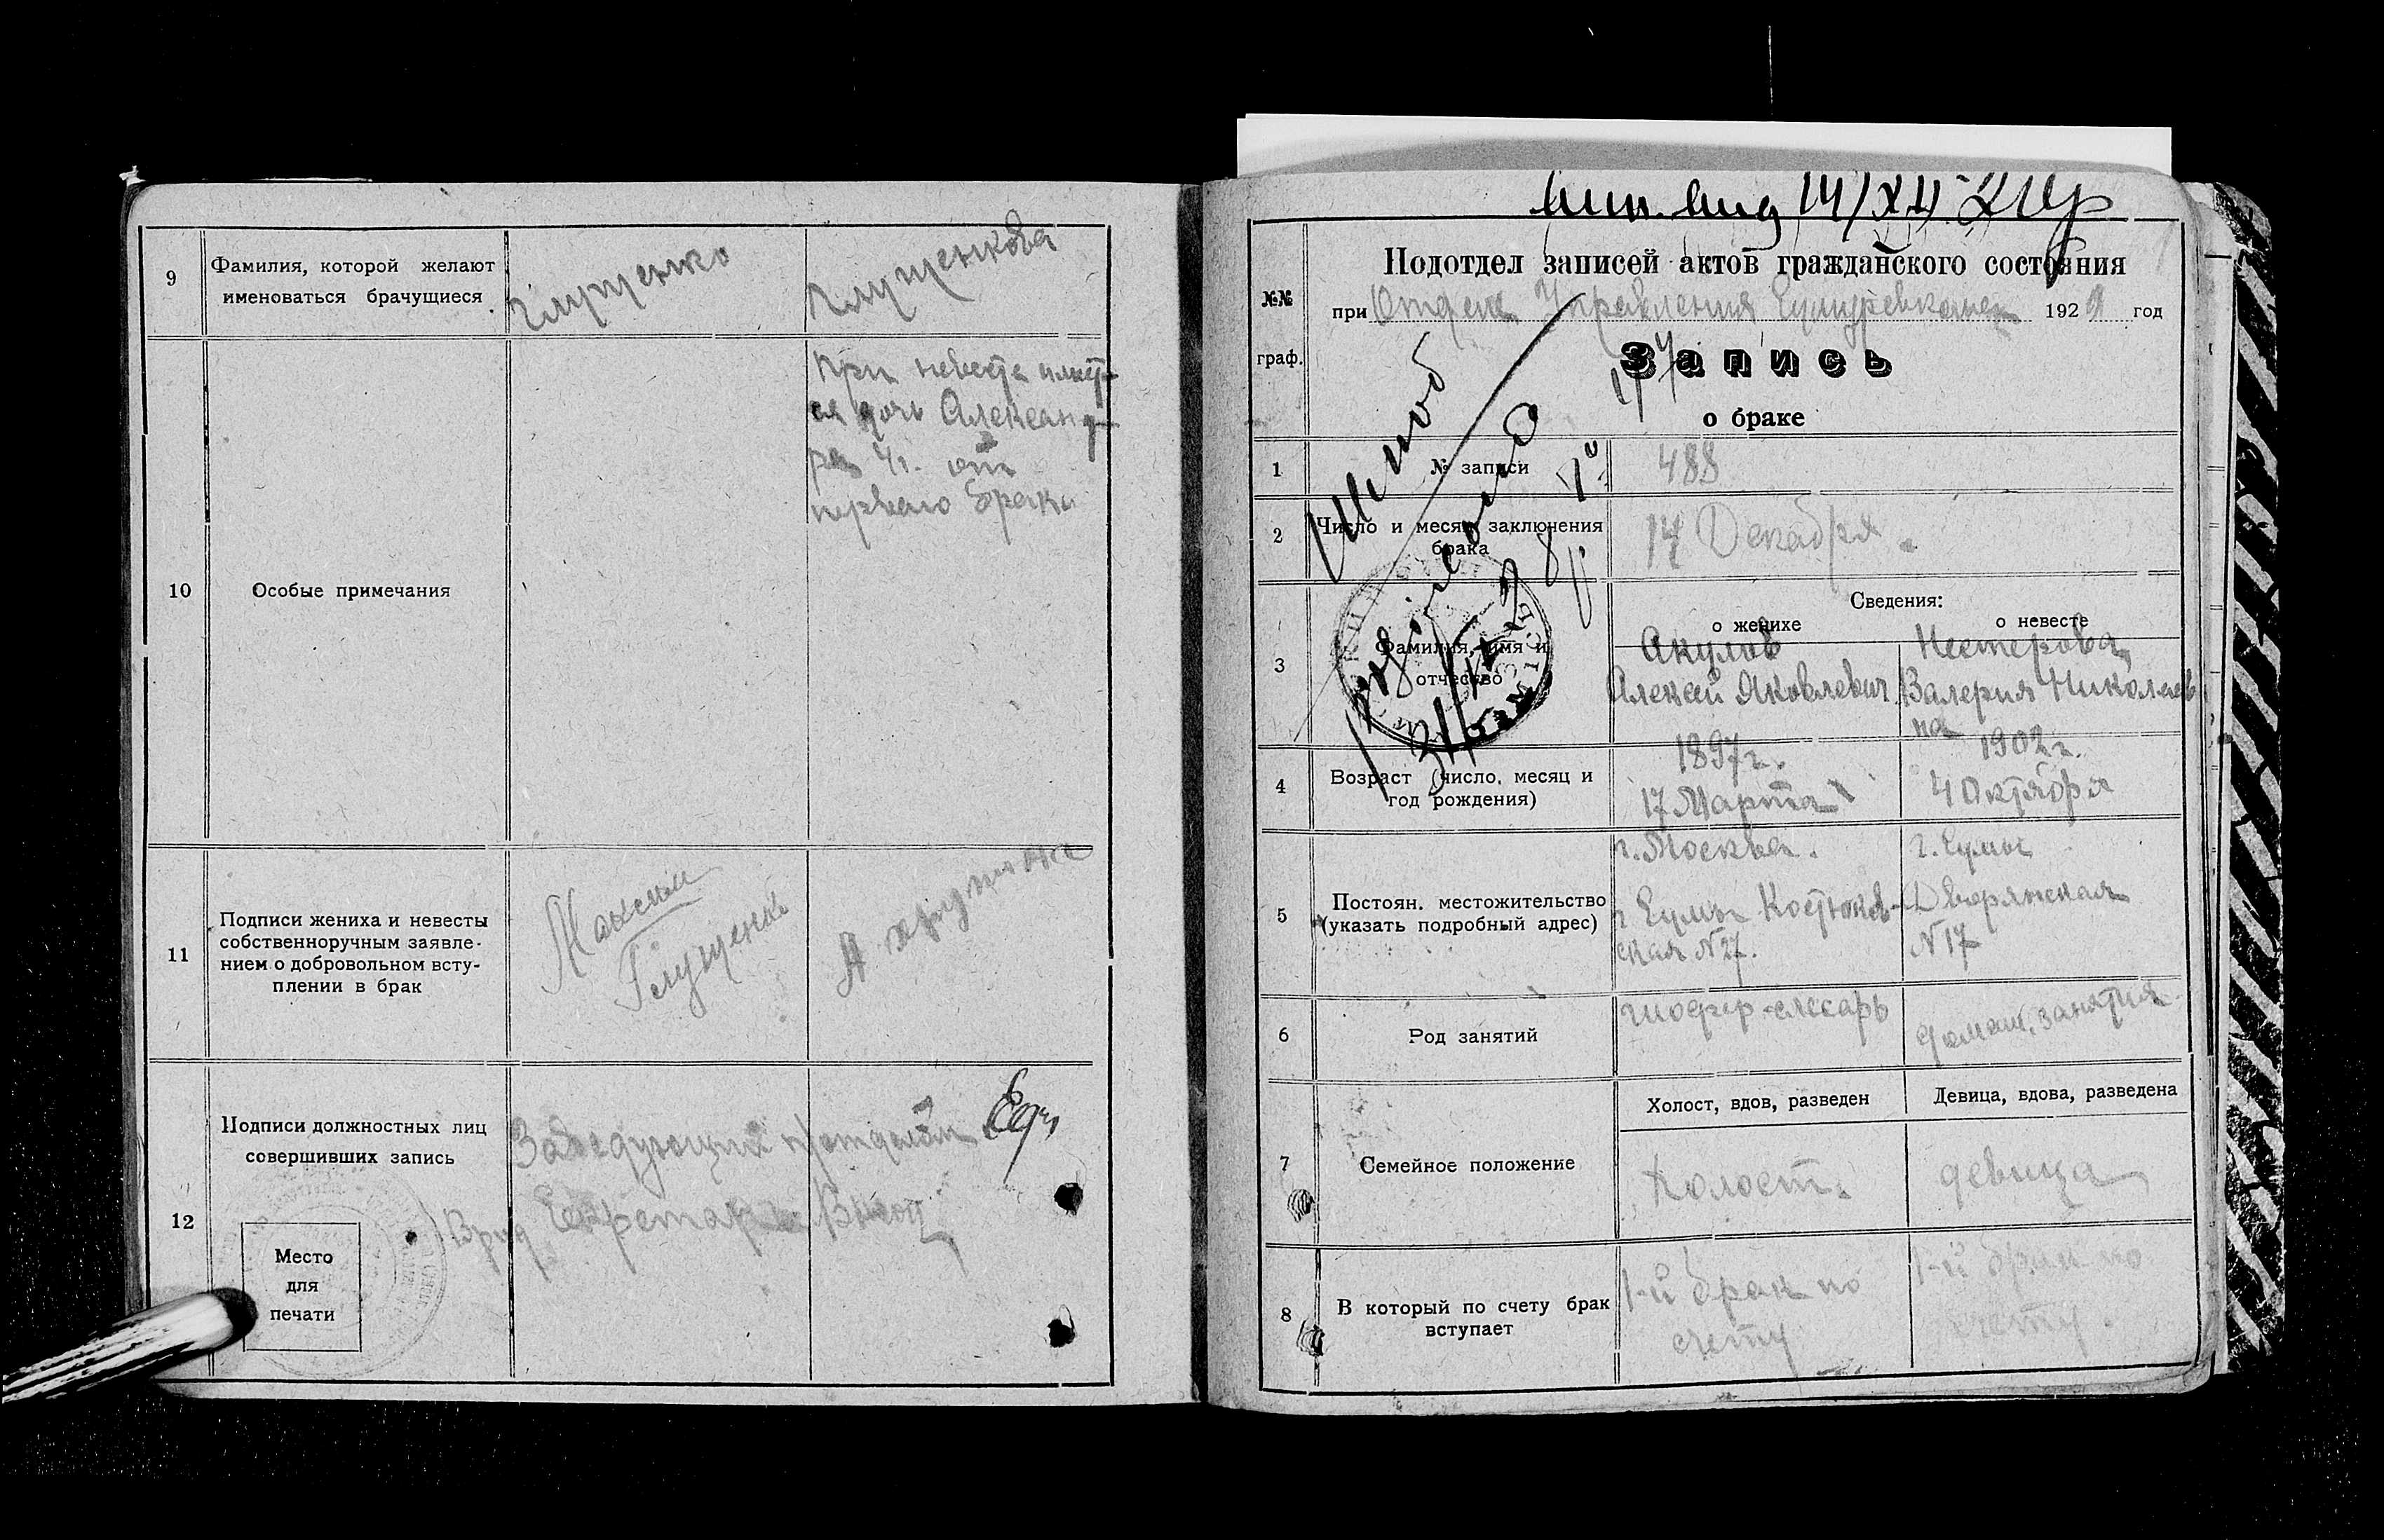 9
Фамилия, которой желают
именоваться брачущиеся
Глущенко
Глущенкова
10
Особые примечания
При невесте имеет-
ся дочь Александ-
ра 4 г. от
первого брака
11
Подписи жениха и невесты
собственноручным заявле-
нием о добровольном всту-
плении в брак
Максим
Глущенко
А
12
Подписи должностных лиц
совершивших запись
Заведующий п/отделом
Врид Секретаря
Место
для
печати
14/XII
№№
граф.
Подотдел записей актов гражданского состояния
при Отделе Управления 192 год
Запись
о браке
1
№ записи
488
2
Число и месяц заключения
брака
14 Декабря
Сведения:
о женихе
о невесте
3
Фамилия, имя и
отчество
Акулов
Алексей Яковлевич
Нестерова
Валерия Николаев
на
4
Возраст (число, месяц и
год рождения)
1897 г.
17 Марта
1902 г.
4 Октября
5
Постоян. местожительство
(указать подробный адрес)
г. Москва.
г. Сумы Костюков-
ская N 27.
г. Сумы
Дворянская
N 17
6
Род занятий
шофер-слесарь
домаш. занятия
7
Семейное положение
Холост, вдов, разведен
Девица, вдова, разведена
Холост.
девица
8
В который по счету брак
вступает
1-й брак по
счету
1-й брак по
счету.